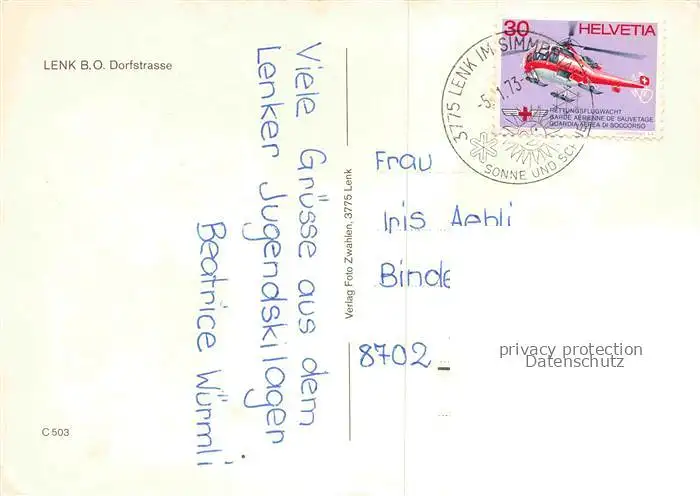 LENK B.O. Dorfstrasse
Viele Grüsse aus dem
Lenker Jugendskilager
Beatrice Würmli
C 503
Verlag Foto Zwahlen, 3775 Lenk
30 HELVETIA
RETTUNGSFLUGWACHT
GARDE AERIENNE DE SAUVETAGE
GUARDIA AEREA DI SOCCORSO
3775 LENK IM SIMME
-5.1.73-
SONNE UND SCH
Frau
Iris Aebli
Binde
8702
privacy protection
Datenschutz